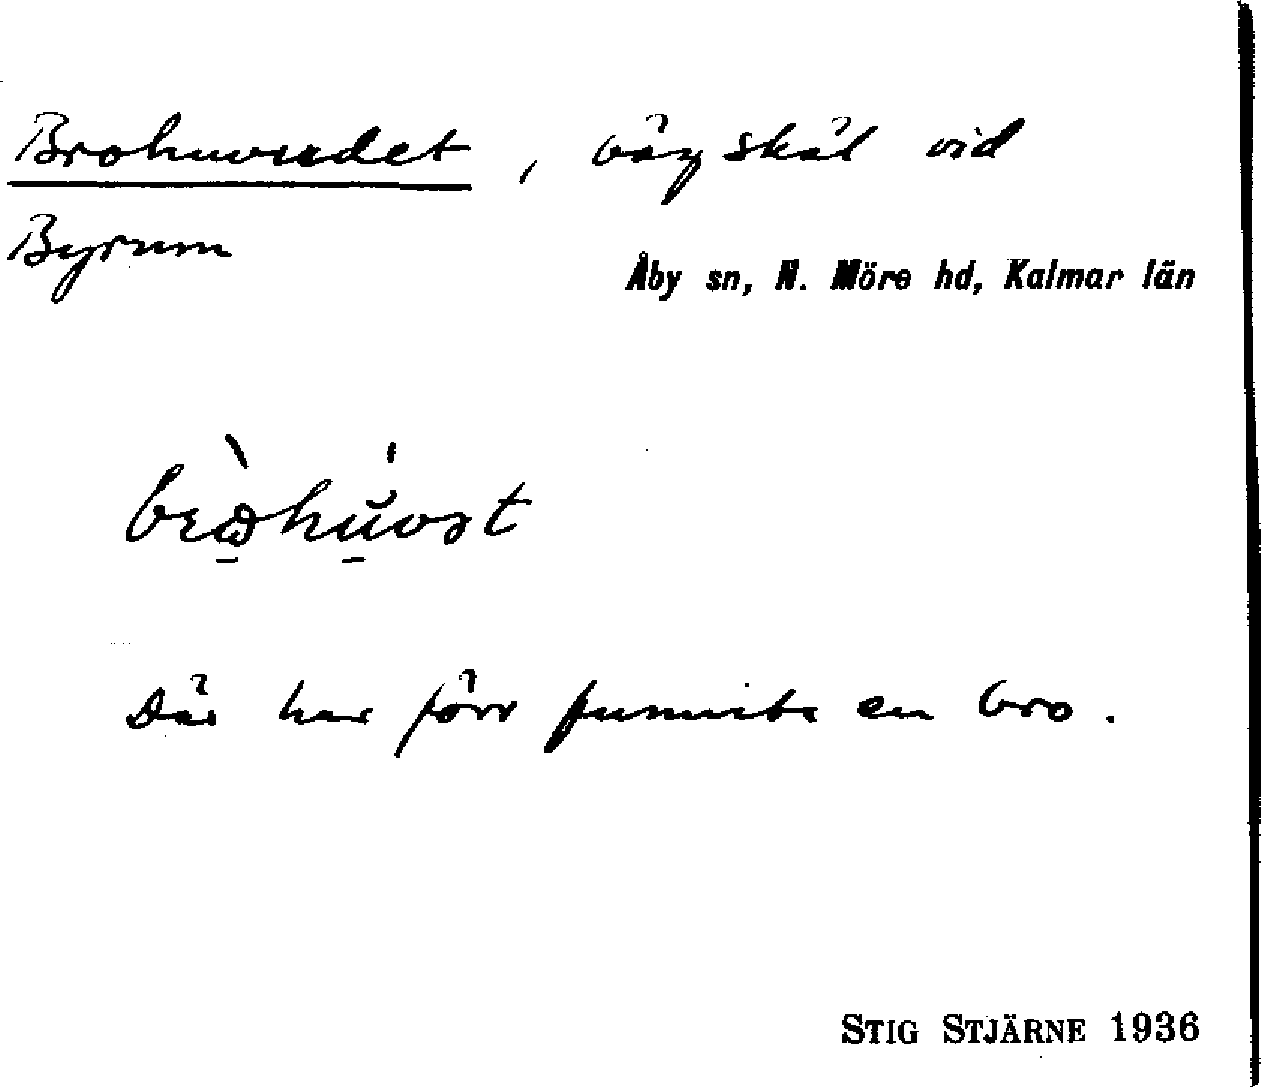 Brohuvudet, vägskäl vid
Byrum
Åby sn, N. Möre hd, Kalmar län
Där har förr funnits en bro.
STIG STJÄRNE 1936